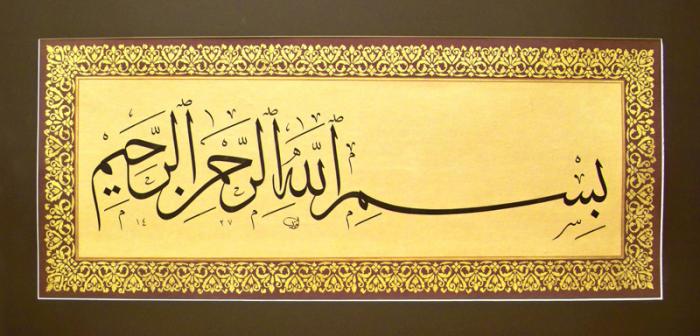 بِسْمِ اللّٰهِ الرَّحْمٰنِ الرَّحِيْمِ
٢٧ ١٤